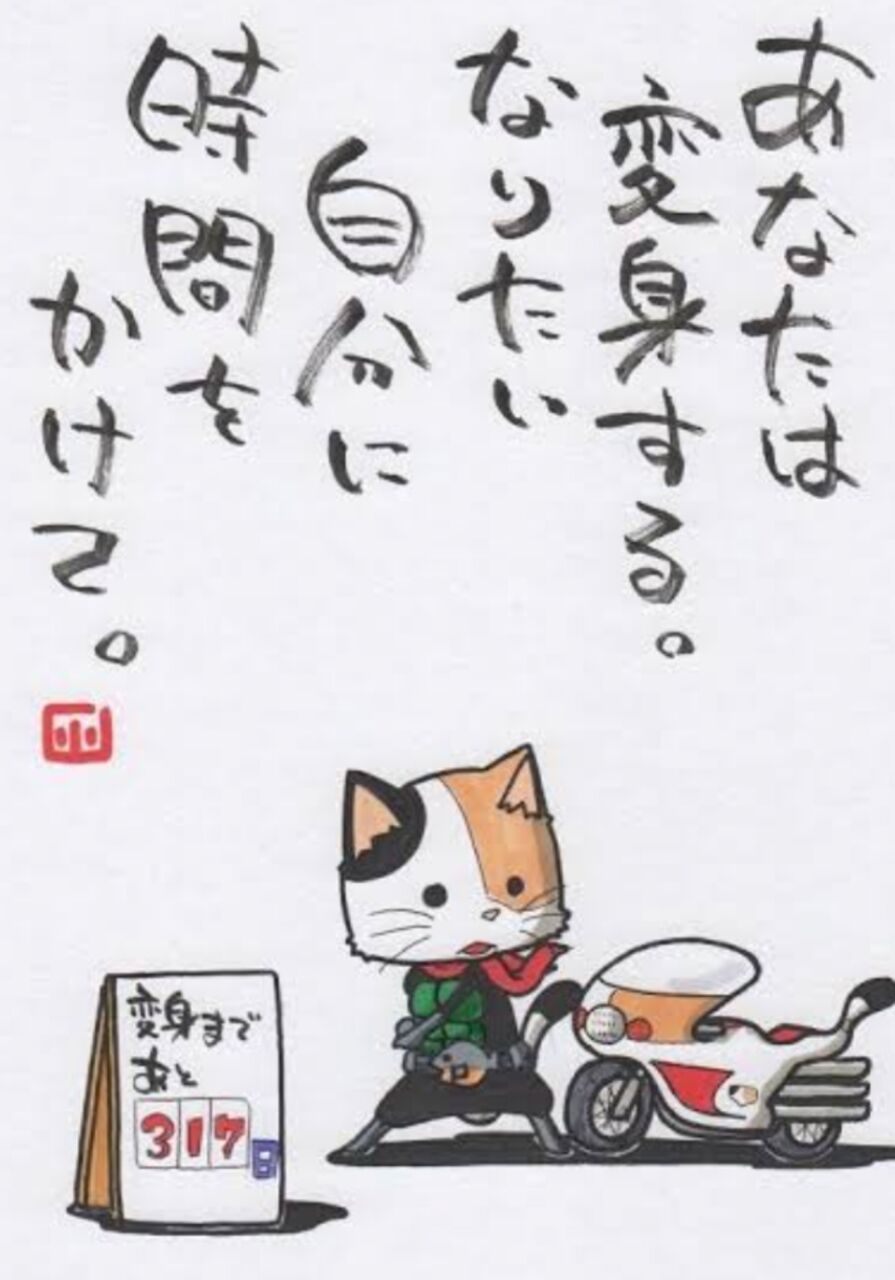 あなたは
変身する。
なりたい
自分に
時間を
かけて。
変身まで
あと
317日